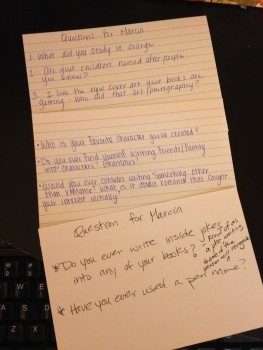 Questions for Marcia
1. What did you study in college
2. Are your children named after people
you know?
3. I love the new cover art your books are
getting. Who did that art/photography?
• Who is your favorite character you've created?
• Do you ever find yourself writing friends/family
into characters? Examples?
• Would you ever consider writing something other
than romance? What is it about romance that caught
your interest initially
Question for Marcia
* Do you ever write inside jokes
into any of your books?
kind of as
a joke writing
some of the
person will recognize
* Have you ever used a pen name?